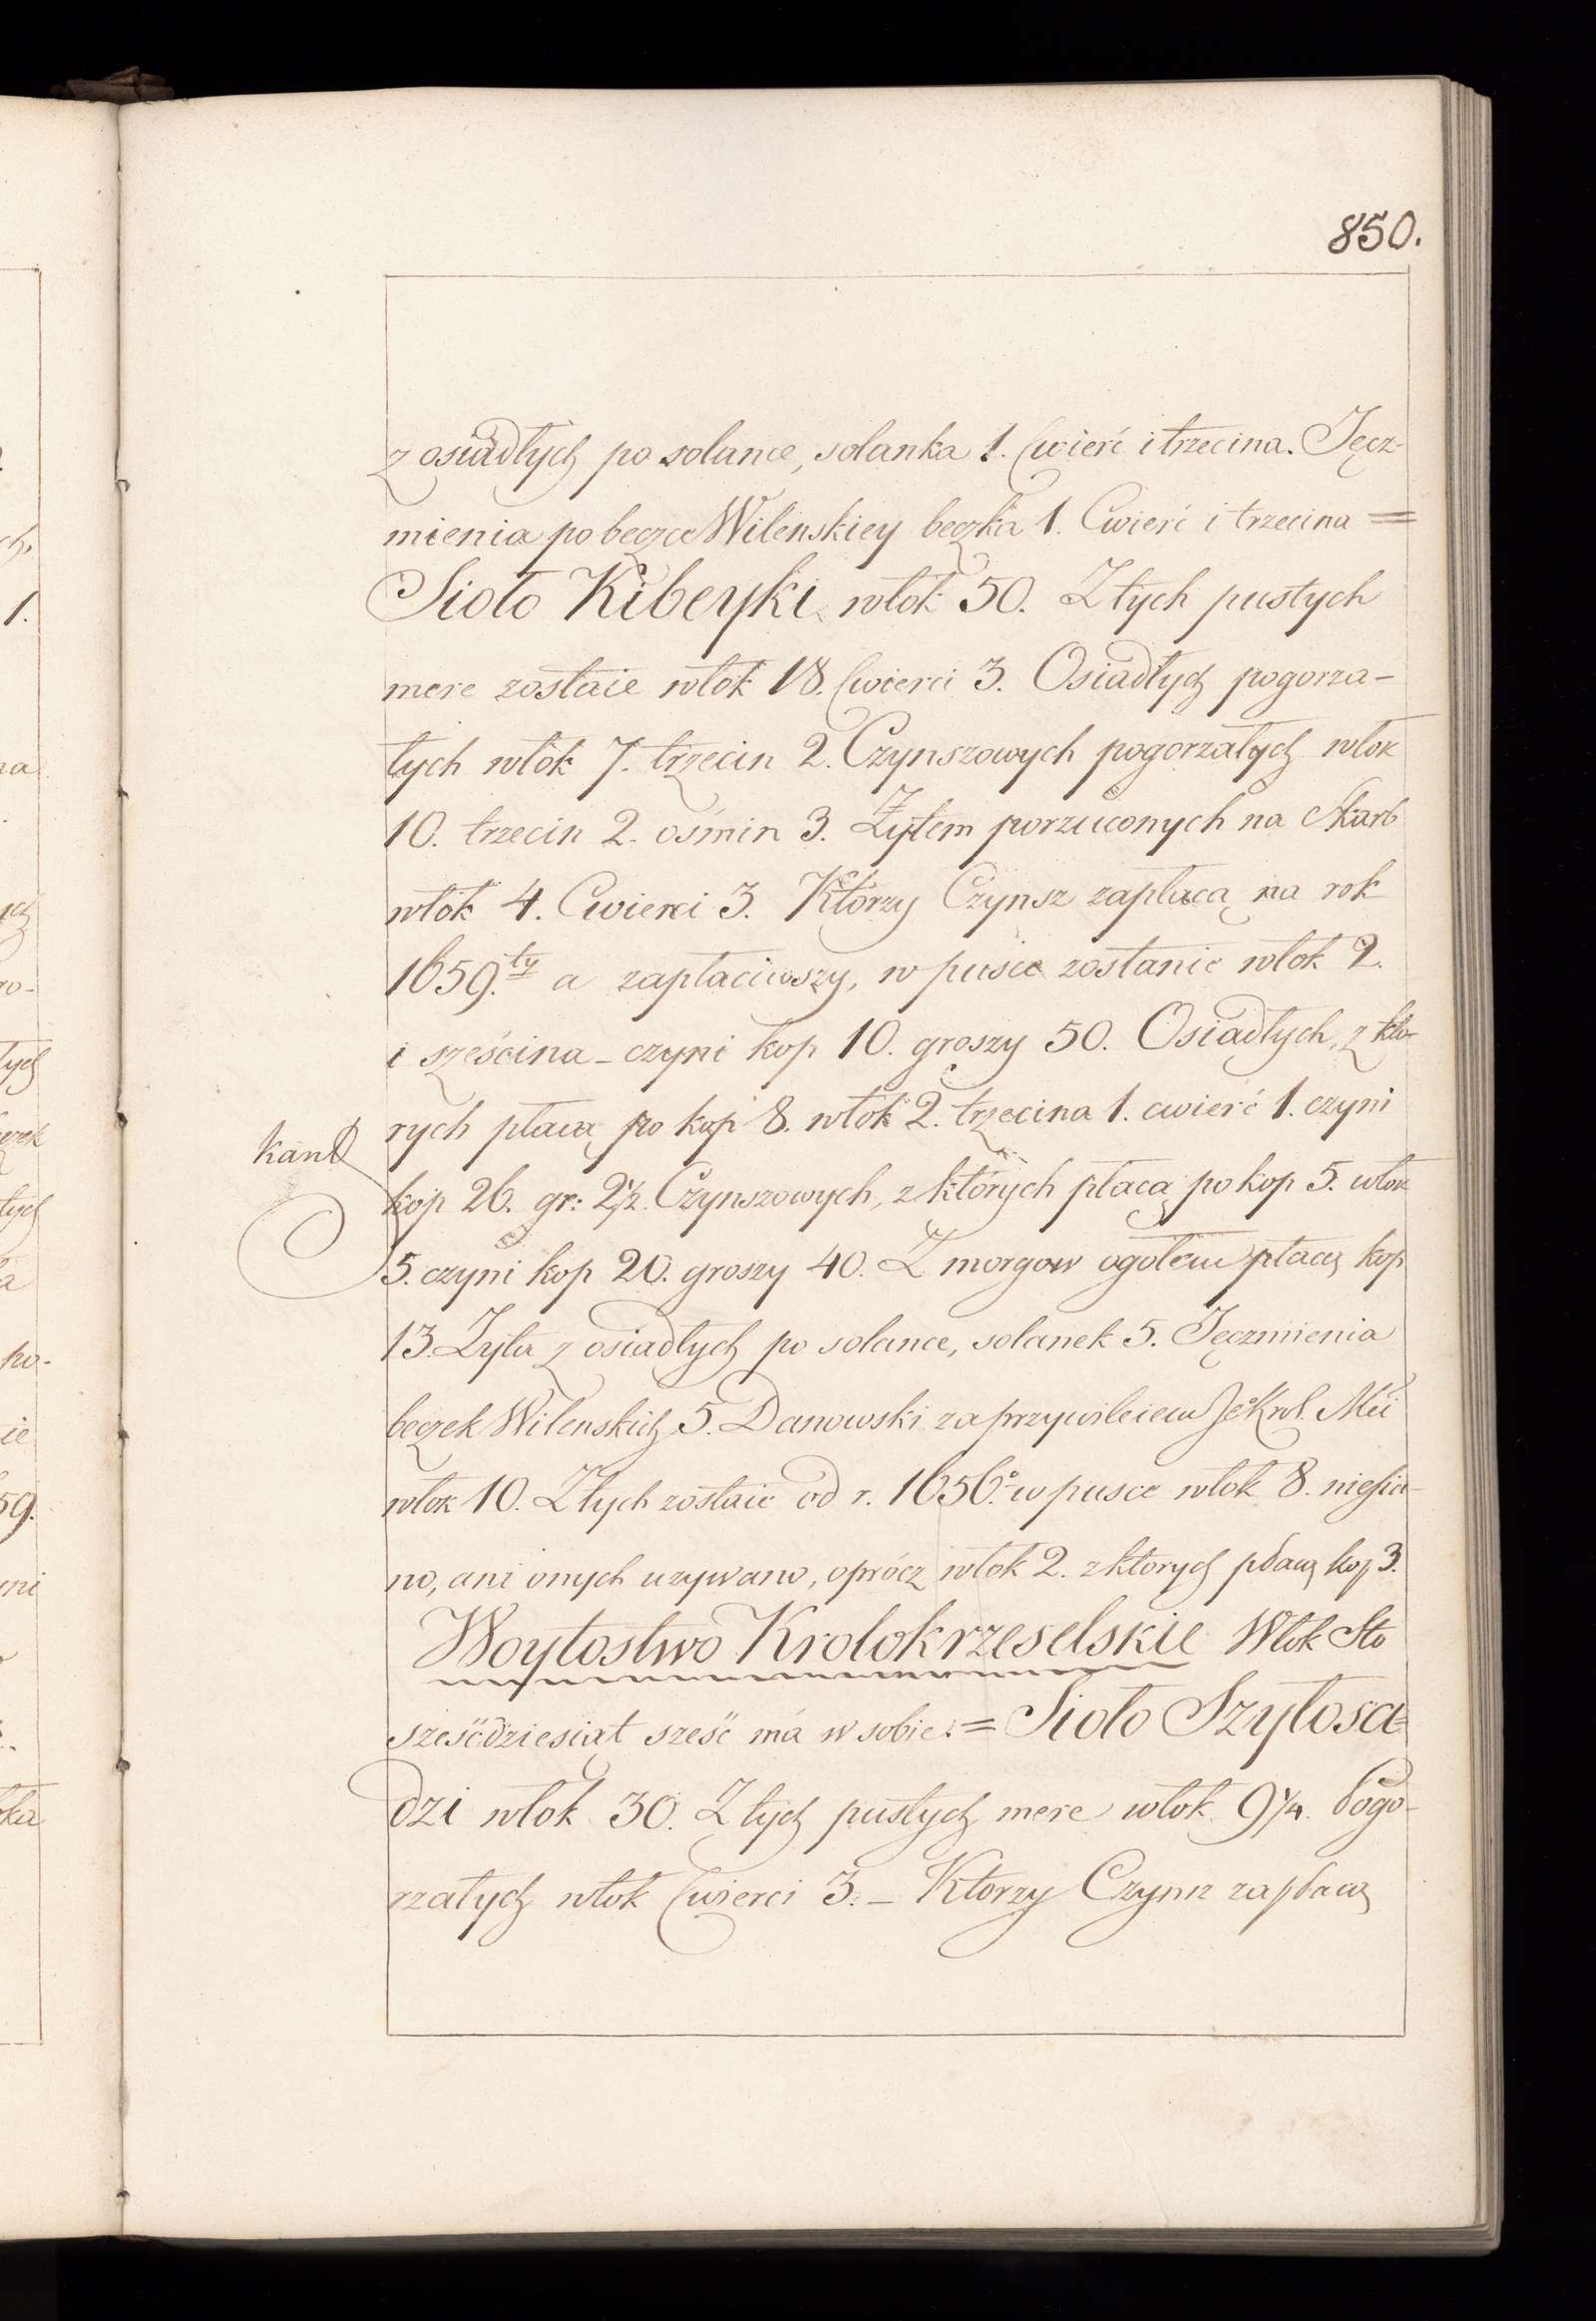 850.
z osiadłych po solance, solanka 1. Cwierć i trzecina. Jęcz-
mienia po beczce Wilenskiey beczka 1. Cwierć i trzecina =
Sioło Kibeyki włók 50. Z tych pustych
mere zostaie włók 18. Cwierci 3. Osiadłych pogorza-
łych włók 7. trzecin 2. Czynszowych pogorzałych włok
10. trzecin 2. ośmin 3. Żytem porzuconych na Skarb
włók 4. Cwierci 3. Którzy Czynsz zapłacą na rok
1659.ty a zapłaciwszy, w pusce zostanie włok 2.
i sześcina - czyni kop 10. groszy 50. Osiadłych, z któ-
rych płacą po kop 8. włók 2. trzecina 1. cwierć 1. czyni
kop 26. gr: 2½. Czynszowych, z których płacą po kop 5. włok
5. czyni kop 20. groszy 40. Z morgow ogołem płacą kop
13. Zyta z osiadłych po solance, solanek 5. Jęczmienia
beczek Wilenskich 5. Danowski za przywileiem JeKrol. Mći
włok 10. Z tych zostaie od r. 1656.° w pusce włok 8. niesia-
no, ani onych uzywano, oprócz włok 2. z ktorych płacą kop 3.
Woytostwo Krolokrzeselskie Włok Sto
sześćdziesiąt sześć má w sobie. = Sioło Szyłosa=
dzi włok 30. Z tych pustych mere włok 9¼. Pogo-
rzałych włok Cwierci 3. - Ktorzy Czynsz zapłacą